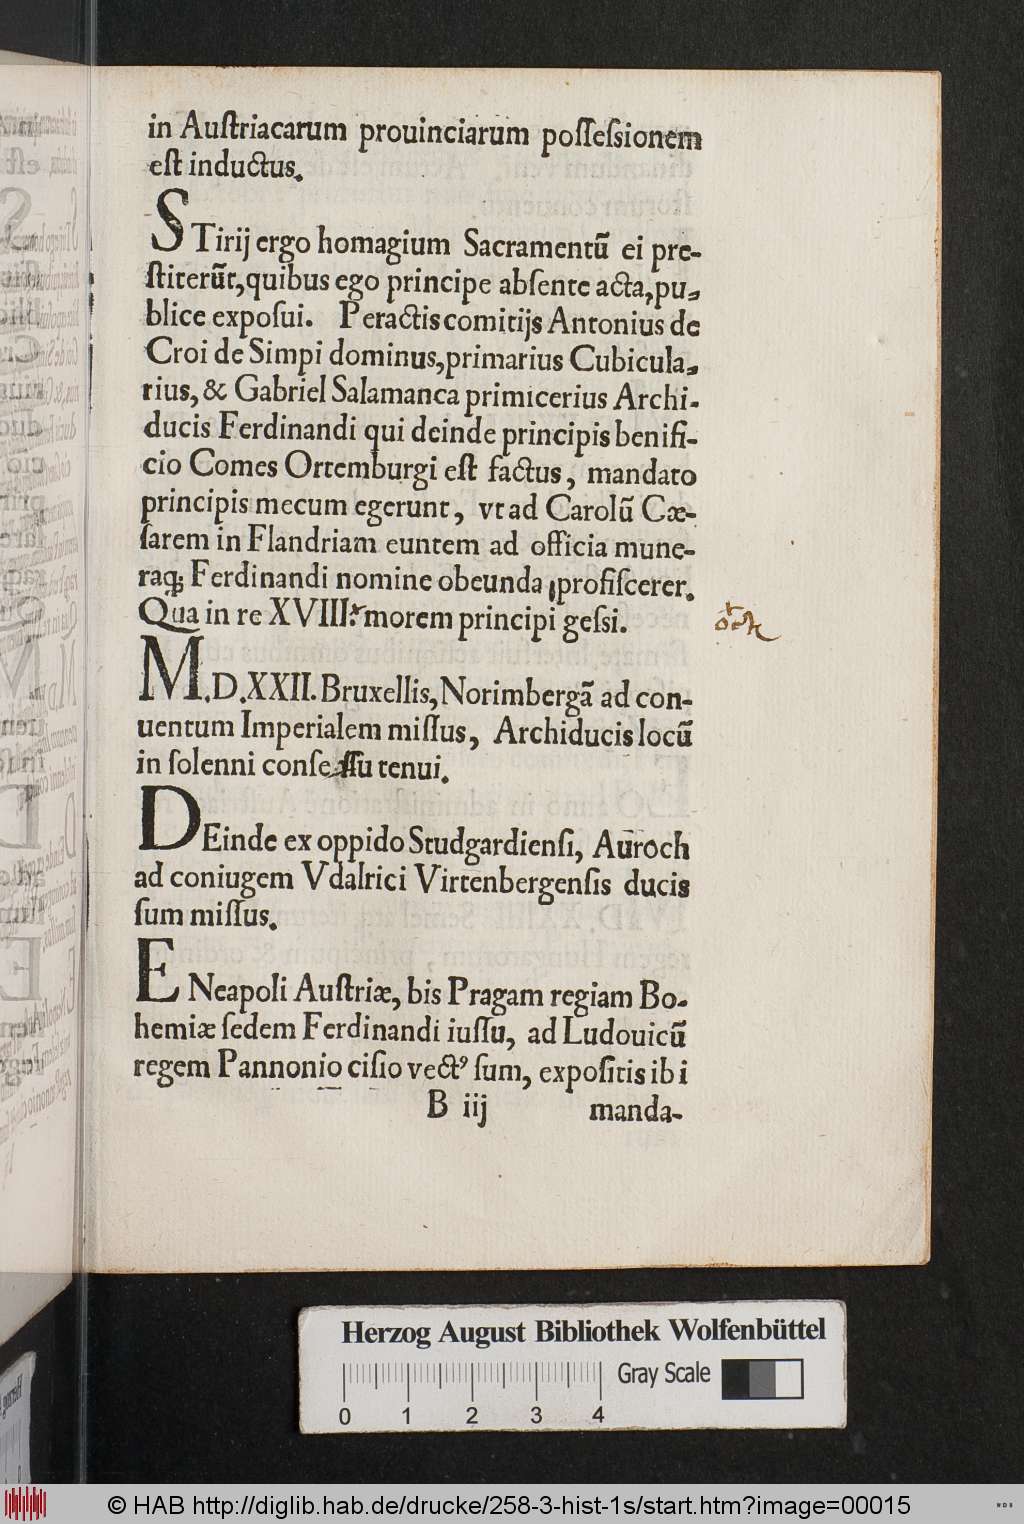 in Auſtriacarum prouinciarum poſſeſsionem
eſt inductus.
STirij ergo homagium Sacramentū ei pre-
ſtiterūt, quibus ego principe abſente acta, pu-
blice expoſui. Peractis comitijs Antonius de
Croi de Simpi dominus, primarius Cubicula-
rius, & Gabriel Salamanca primicerius Archi-
ducis Ferdinandi qui deinde principis benifi-
cio Comes Ortemburgi eſt factus, mandato
principis mecum egerunt, vt ad Carolū Cæ-
ſarem in Flandriam euntem ad officia mune-
raq; Ferdinandi nomine obeunda proficſcerer.
Qua in re XVIII. morem principi geſsi.
M.D.XXII. Bruxellis, Norimbergā ad con-
uentum Imperialem miſſus, Archiducis locū
in ſolenni conſeſſu tenui.
DEinde ex oppido Studgardienſi, Auroch
ad coniugem Vdalrici Virtenbergenſis ducis
ſum miſſus.
E Neapoli Auſtriæ, bis Pragam regiam Bo-
hemiæ ſedem Ferdinandi iuſſu, ad Ludouicū
regem Pannonio ciſio vectꝰ ſum, expoſitis ibi
B iij manda-
Herzog August Bibliothek Wolfenbüttel
Gray Scale
0 1 2 3 4
© HAB http://diglib.hab.de/drucke/258-3-hist-1s/start.htm?image=00015